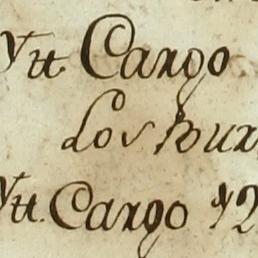 Ytt Cargo
Los Bur
Ytt. Cargo y2